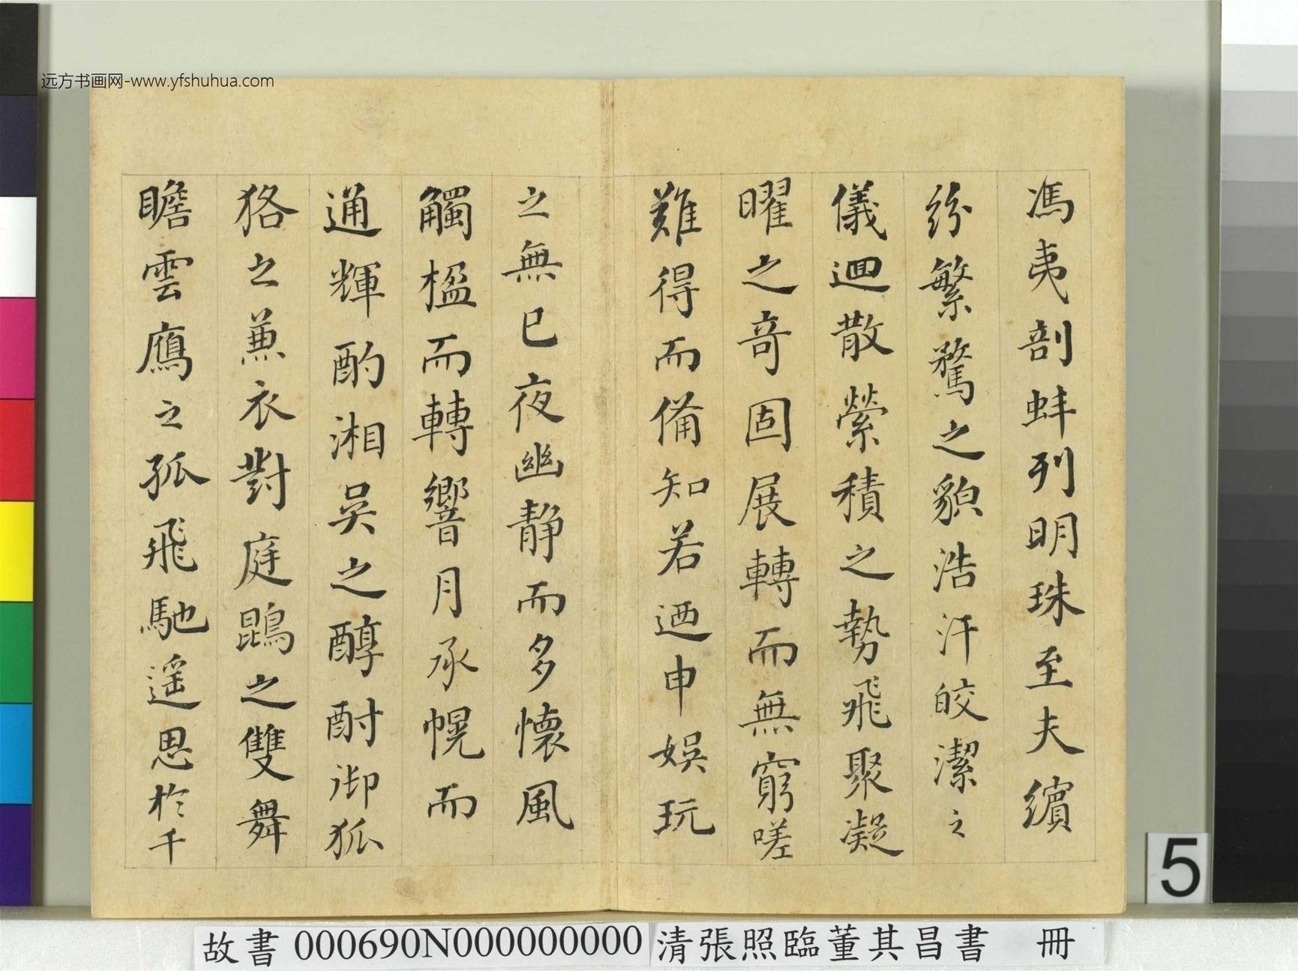 远方书画网-www.yfshuhua.com
馮夷剖蚌列明珠至夫繽
紛繁騖之貌浩汗皎潔之
儀迴散縈積之勢飛聚凝
曜之奇固展轉而無窮嗟
難得而備知若迺申娛玩
之無已夜幽静而多懷風
觸楹而轉響月承幌而
通輝酌湘吳之醇酎御狐
狢之兼衣對庭鵾之雙舞
瞻雲鴈之孤飛馳遥思於千
5
故書 000690N000000000 清張照臨董其昌書 冊